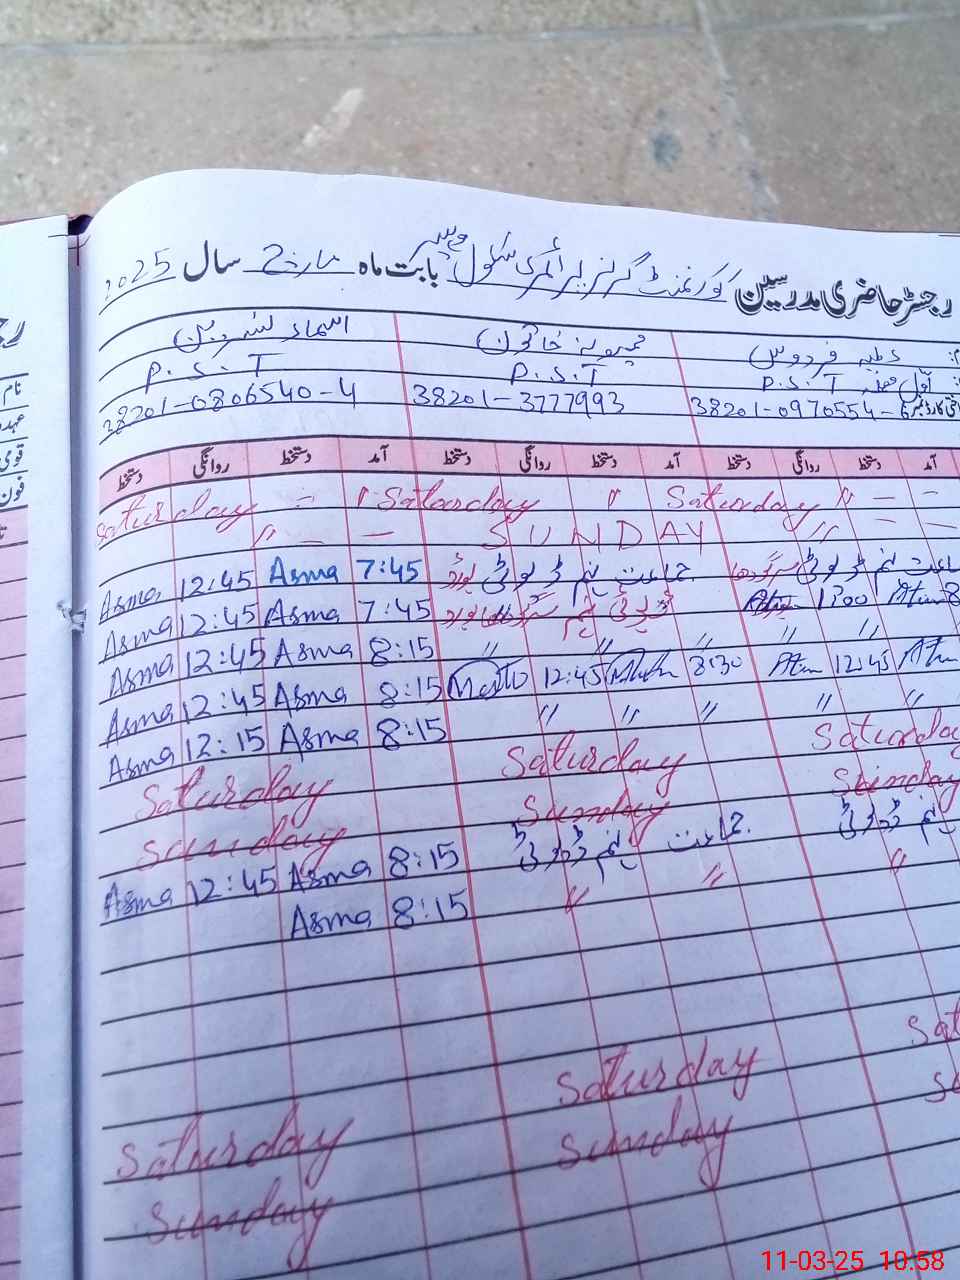 رجسٹر حاضری مدرسین گورنمنٹ گرلز پرائمری سکول بابت ماہ مارچ سال 2025
عطیہ فردوس میمونہ خاتون اسماء نسرین
P.S.T P.S.T P.S.T
38201-0970554-6 38201-3777993 38201-0806540-4
آمد دستخط روانگی دستخط آمد دستخط روانگی دستخط آمد دستخط روانگی دستخط
Saturday 〃 - - Saturday 〃 Saturday 〃 - -
〃 - - SUNDAY 〃 - -
Asma 12:45 Asma 7:45 جماعت پنجم ڈیوٹی بورڈ سرگودھا پنجم ڈیوٹی
Asma 12:45 Asma 7:45 1:00
Asma 12:45 Asma 8:15 〃 〃 〃 〃
Asma 12:45 Asma 8:15 12:45 8:30 12:45
Asma 12:15 Asma 8:15 〃 〃 〃 〃 〃
Saturday Saturday Saturday
Sunday Sunday Sunday
Asma 12:45 Asma 8:15 جماعت پنجم ڈیوٹی پنجم ڈیوٹی
Asma 8:15 〃 〃 〃
Saturday Saturday Sat
Sunday Sunday Su
11-03-25 10:58